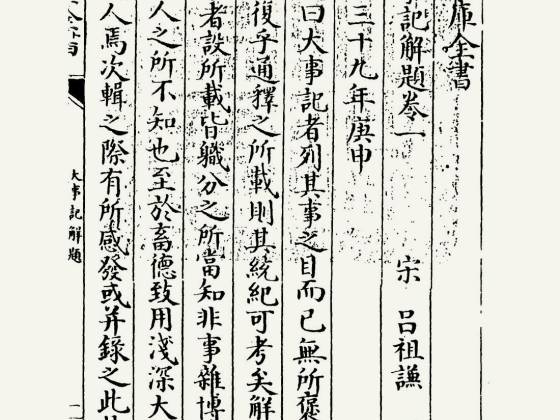 庫全書
記解題卷一
宋 呂祖謙
三十九年庚申
曰大事記者列其事之目而已無所褒
復乎通釋之所載則其統紀可考矣解
者設所載皆職分之所當知非事雜博
人之所不知也至於畜德致用淺深大
人焉次輯之際有所感發或并錄之此
大事記解題